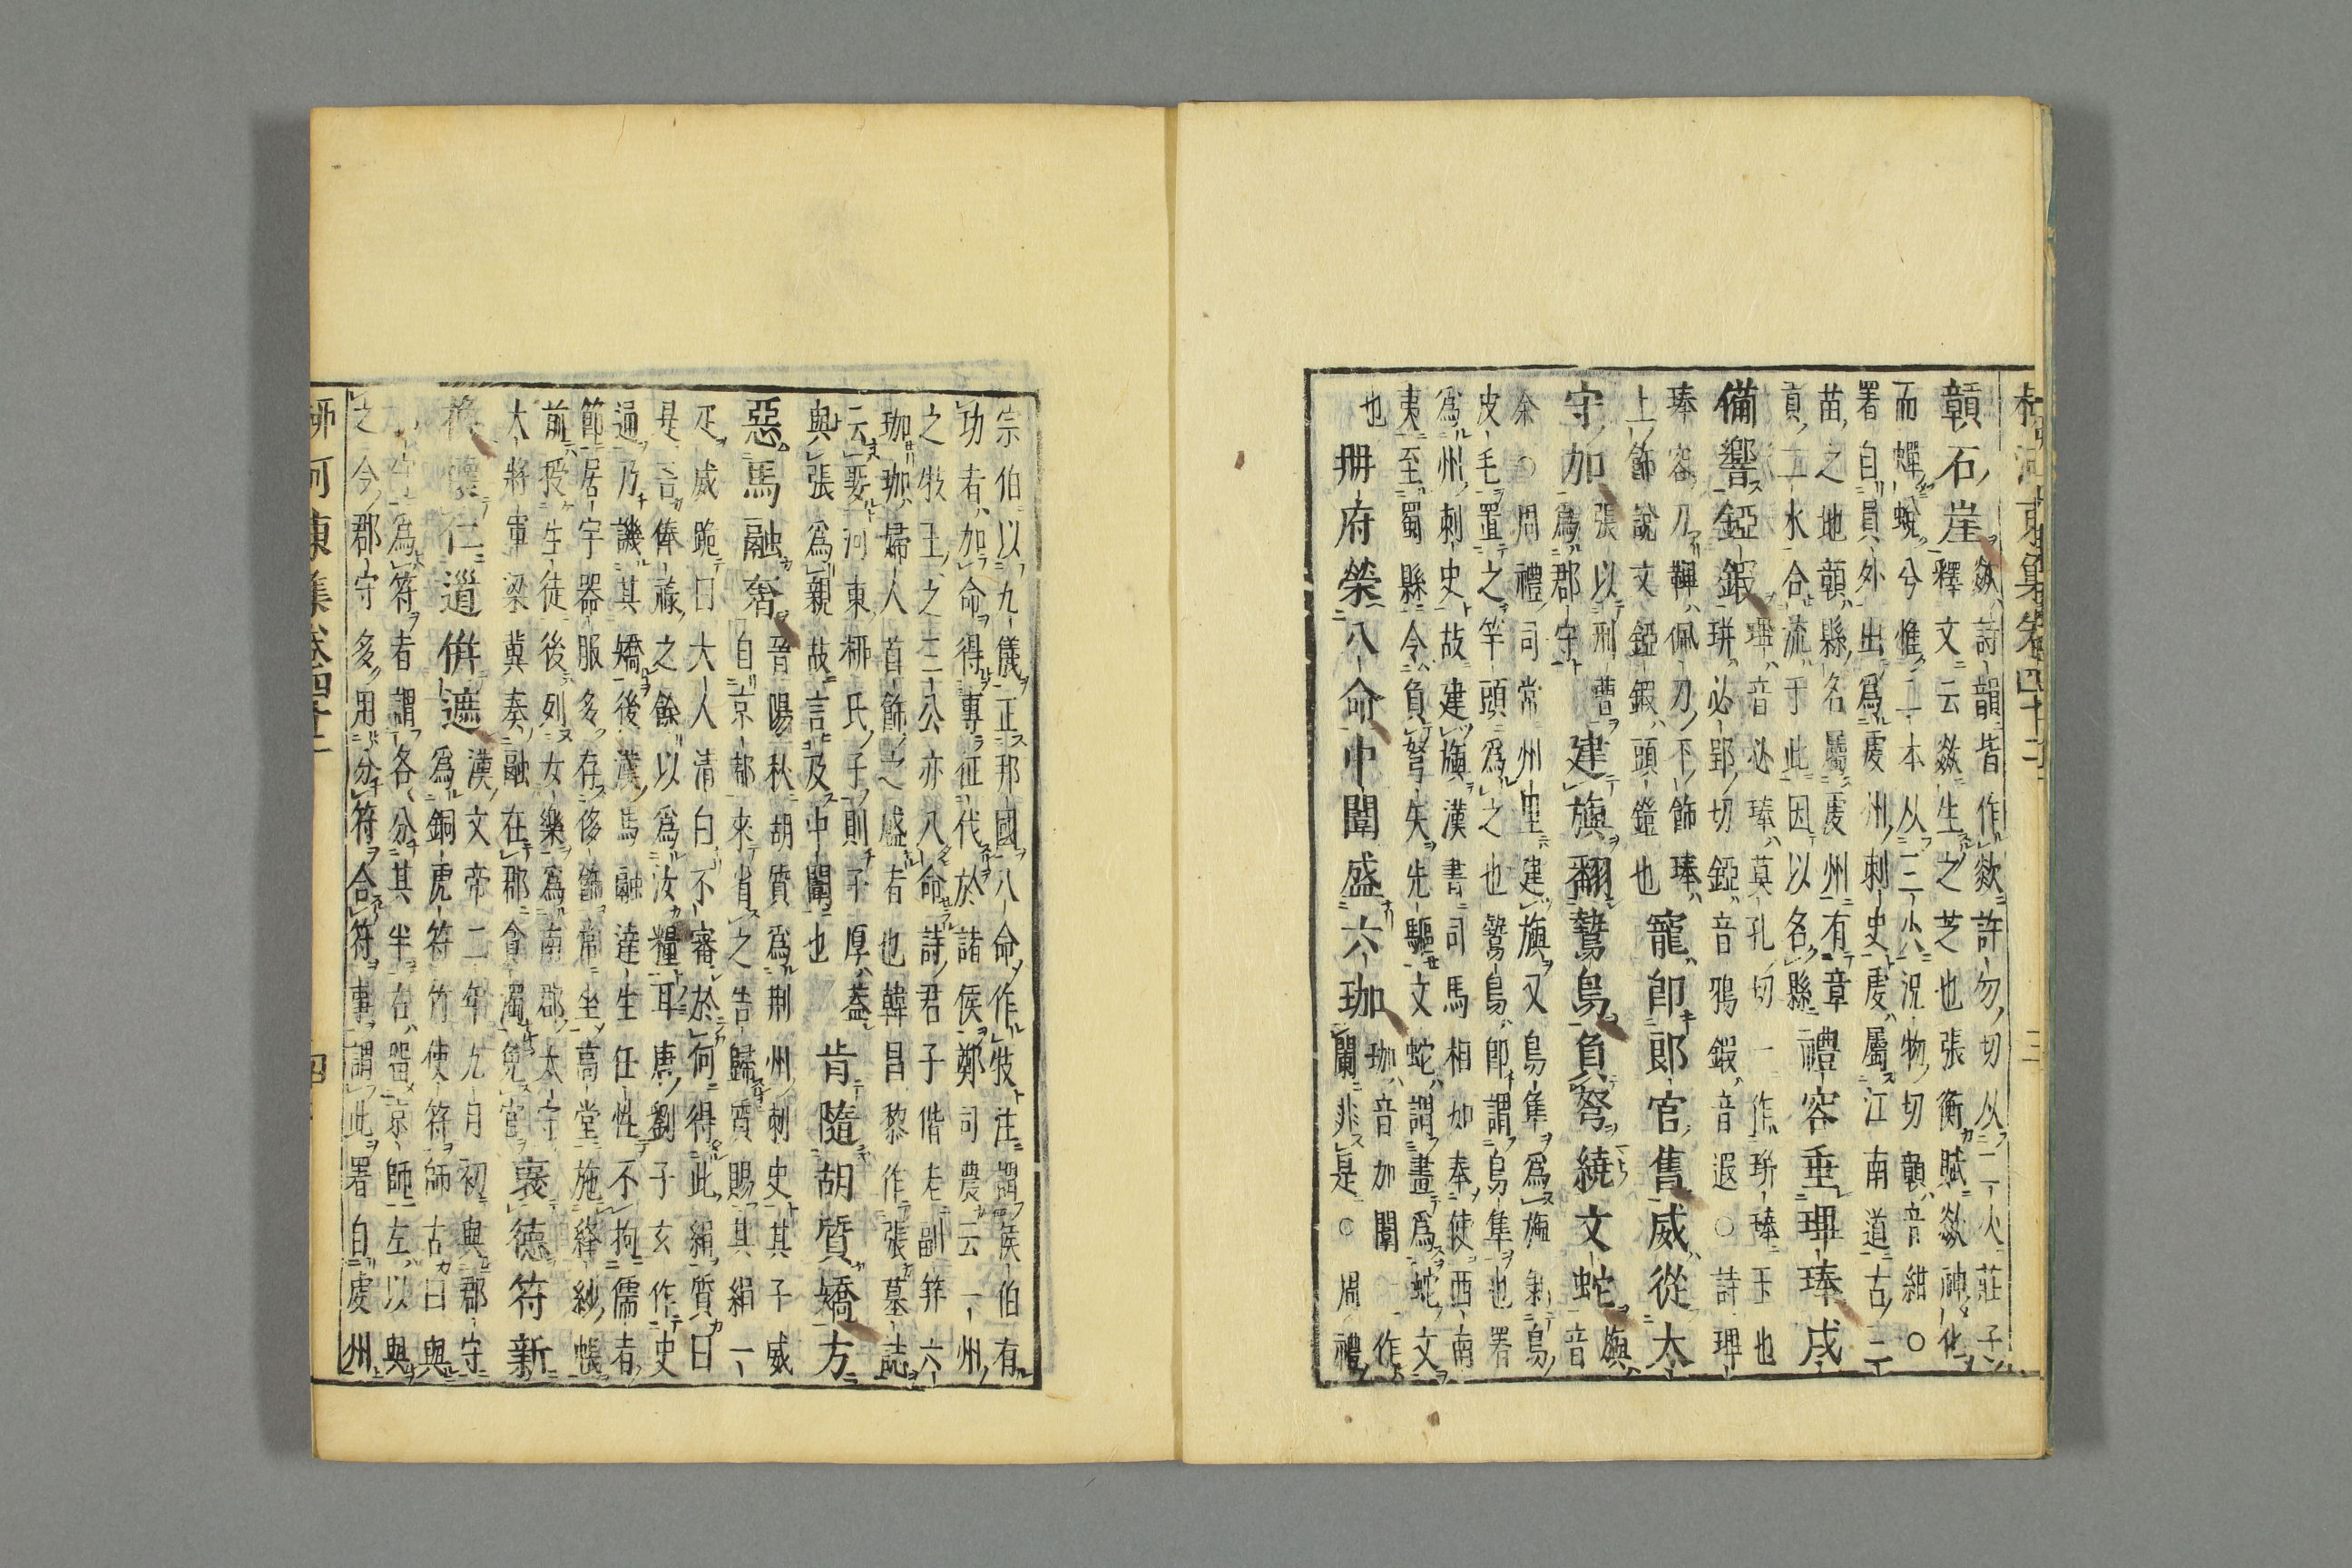 河東集卷四十二
三
贛石崖
歘詩韻皆作欻許勿切从二火莊子
釋文云歘生之芝也張衡賦歘神化
而蟬蛻兮惟二本从三火況物切贛音紺○
署自員外出爲虔州刺史虔屬江南道古三
苗之地贛縣名屬虔州有章
貢二水合流于此因以名縣
禮容垂琕琫戌
備響錏鍜
琕音必琫莫孔切一作琕琫玉也
琕必郢切錏音鴉鍜音遐○詩琕
琫容刀鞞佩刀下飾琫
上飾說文錏鍜頭鎧也
寵即郎官舊威從太
守加
張以刑曹
爲郡守
建旗翻鷙鳥負弩繞文蛇
旟音
余○周禮司常州里建旟又鳥隼爲旟剝鳥
皮毛置之竿頭爲之也鷙鳥即謂鳥隼也署
爲州刺史故建旟漢書司馬相如奉使西南
夷至蜀縣令負弩矢先驅文蛇謂畫爲蛇文
也
册府榮八命中闈盛六珈
珈音加闈一作
闌非是○周禮
宗伯以九儀正邦國八命作牧注謂侯伯有
功者加命得專征伐於諸侯鄭司農云一州
之牧王之三公亦八命詩君子偕老副笄六
珈珈婦人首飾之盛者也韓昌黎作張墓誌
云娶河東柳氏子則子厚蓋
與張爲親故言及中闈也
肯隨胡質矯方
惡馬融奢
晉陽秋胡質爲荆州刺史其子威
自京都來省之告歸質賜其絹一
疋威跪曰大人清白不審於何得此絹質曰
是吾俸祿之餘以爲汝糧耳唐劉子玄作史
通乃譏其矯後漢馬融達生任性不拘儒者
節居宇器服多存侈飾常坐高堂施絳紗帳
前授生徒後列女樂爲南郡太守
大將軍梁冀奏融在郡貪濁免官
襃德符新
換懷仁道併遮
漢文帝二年九月初與郡守
爲銅虎符竹使符師古曰與
守爲符者謂各分其半右留京師左以與
之今郡守多用分符合符事謂此署自虔州
柳河東集卷四十二
四